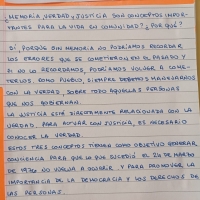 ¿MEMORIA, VERDAD Y JUSTICIA SON CONCEPTOS IMPOR-
TANTES PARA LA VIDA EN COMUNIDAD? ¿POR QUÉ?
SÍ, PORQUE SIN MEMORIA NO PODRÍAMOS RECORDAR
LOS ERRORES QUE SE COMETIERON EN EL PASADO Y
SI NO LO RECORDAMOS, PODRÍAMOS VOLVER A COME-
TERLOS. COMO PUEBLO, SIEMPRE DEBEMOS MANEJARNOS
CON LA VERDAD, SOBRE TODO AQUELLAS PERSONAS
QUE NOS GOBIERNAN.
LA JUSTICIA ESTÁ DIRECTAMENTE RELACIONADA CON LA
VERDAD, PARA ACTUAR CON JUSTICIA, ES NECESARIO
CONOCER LA VERDAD.
ESTOS TRES CONCEPTOS TIENEN COMO OBJETIVO GENERAR
CONCIENCIA PARA QUE LO QUE SUCEDIÓ EL 24 DE MARZO
DE 1976 NO VUELVA A OCURRIR, Y PARA PROMOVER LA
IMPORTANCIA DE LA DEMOCRACIA Y LOS DERECHOS DE
LAS PERSONAS.